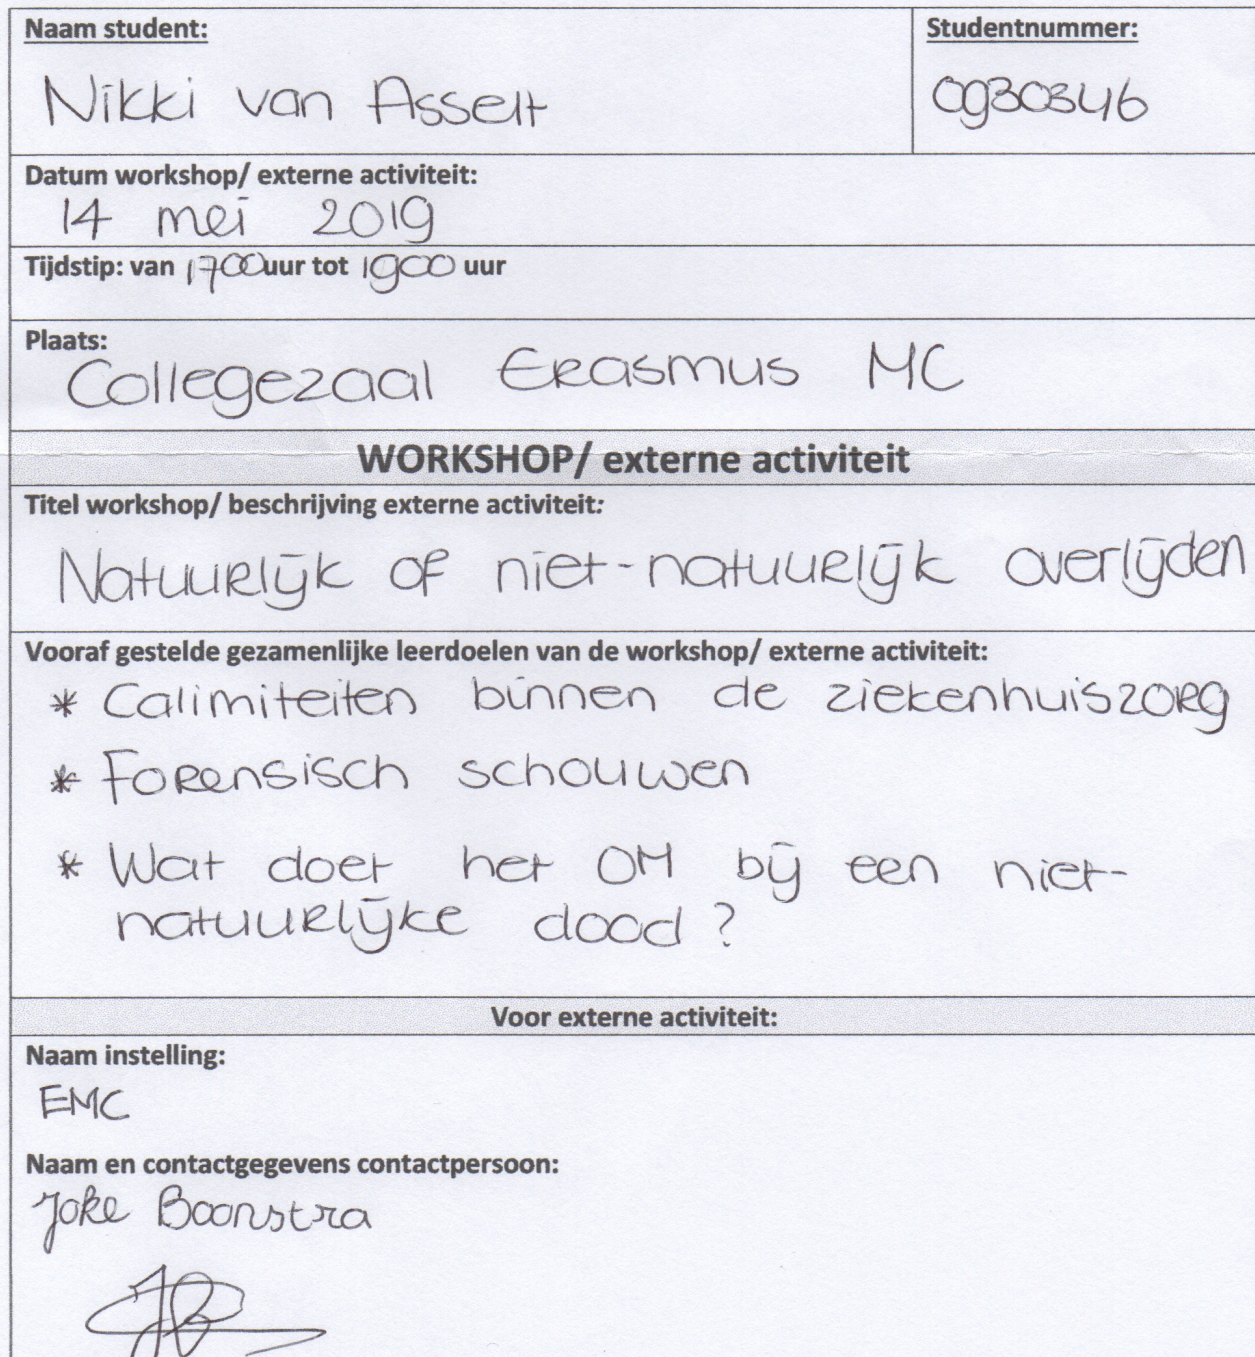 Naam student:
Studentnummer:
Nikki van Asselt
0930346
Datum workshop/ externe activiteit:
14 mei 2019
Tijdstip: van 1700 uur tot 1900 uur
Plaats:
Collegezaal Erasmus MC
WORKSHOP/ externe activiteit
Titel workshop/ beschrijving externe activiteit:
Natuurlijk of niet-natuurlijk overlijden
Vooraf gestelde gezamenlijke leerdoelen van de workshop/ externe activiteit:
* Calimiteiten binnen de ziekenhuiszorg
* Forensisch schouwen
* Wat doet het OM bij een niet-
natuurlijke dood?
Voor externe activiteit:
Naam instelling:
EMC
Naam en contactgegevens contactpersoon:
Joke Boonstra